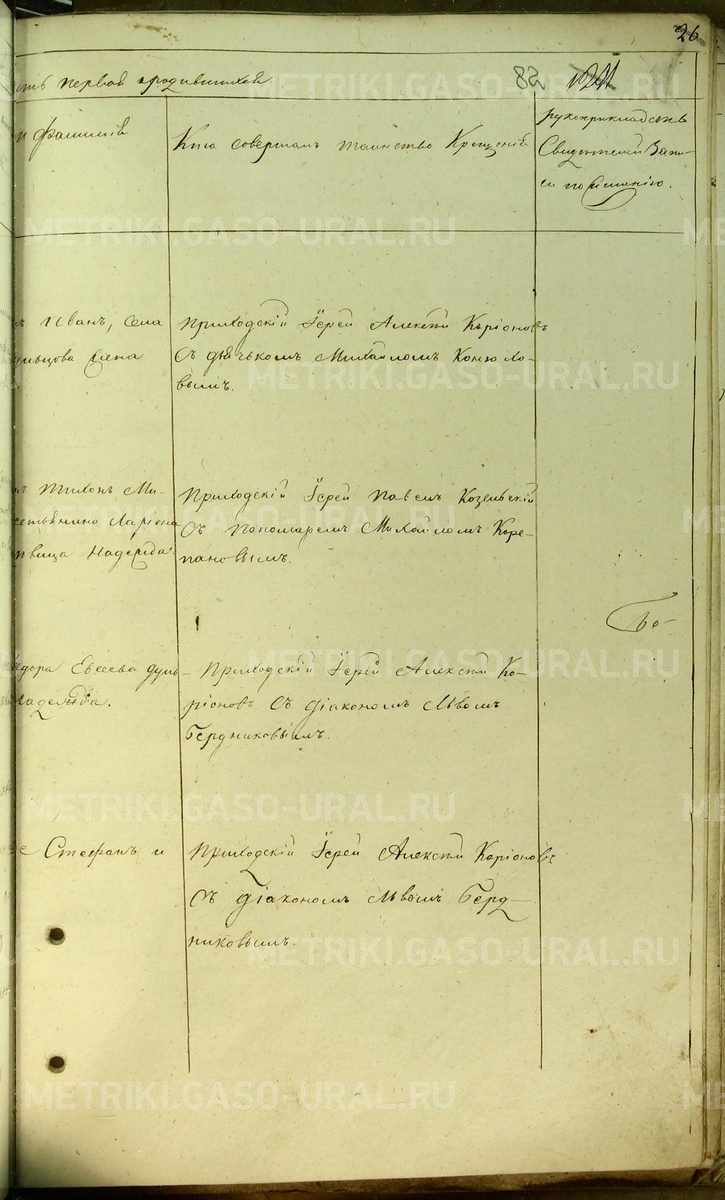 26
сть первая о родившихся
82
и фамилия
Кто совершалъ таинство Крещенія
Рукоприкладство
Свидѣтелей Запи-
си по желанію.
ъ Иванъ, села
льцова жена
Приходскій Іерей Алексѣй Каріоновъ
Съ дьячькомъ Михайломъ Конюхо-
вымъ.
Тихонъ Ми-
Ларіона
вица Надежда.
Приходскій Іерей Павелъ Козельскій
Съ пономаремъ Михайломъ Коре-
пановымъ.
Бо-
едора Евсеева дум-
Приходскій Іерей Алексѣй Ка-
ріоновъ Съ діакономъ Львомъ
Бердниковымъ.
е Стефанъ и
Приходскій Іерей Алексѣй Каріоновъ
Съ діакономъ Львомъ Берд-
никовымъ.
METRIKI.GASO-URAL.RU